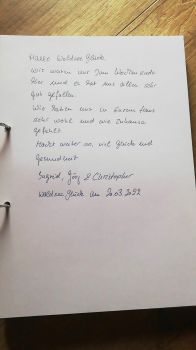 Hallo Waldseeglück
wir waren nur zum Wochenende
hier und es hat uns allen sehr
gut gefallen
Wir haben uns in Eurem Haus
sehr wohl und wie Zuhause
gefühlt
Macht weiter so, viel Glück und
Gesundheit
Ingrid, Jörg & Christopher
Waldseeglück am 20.03.2022